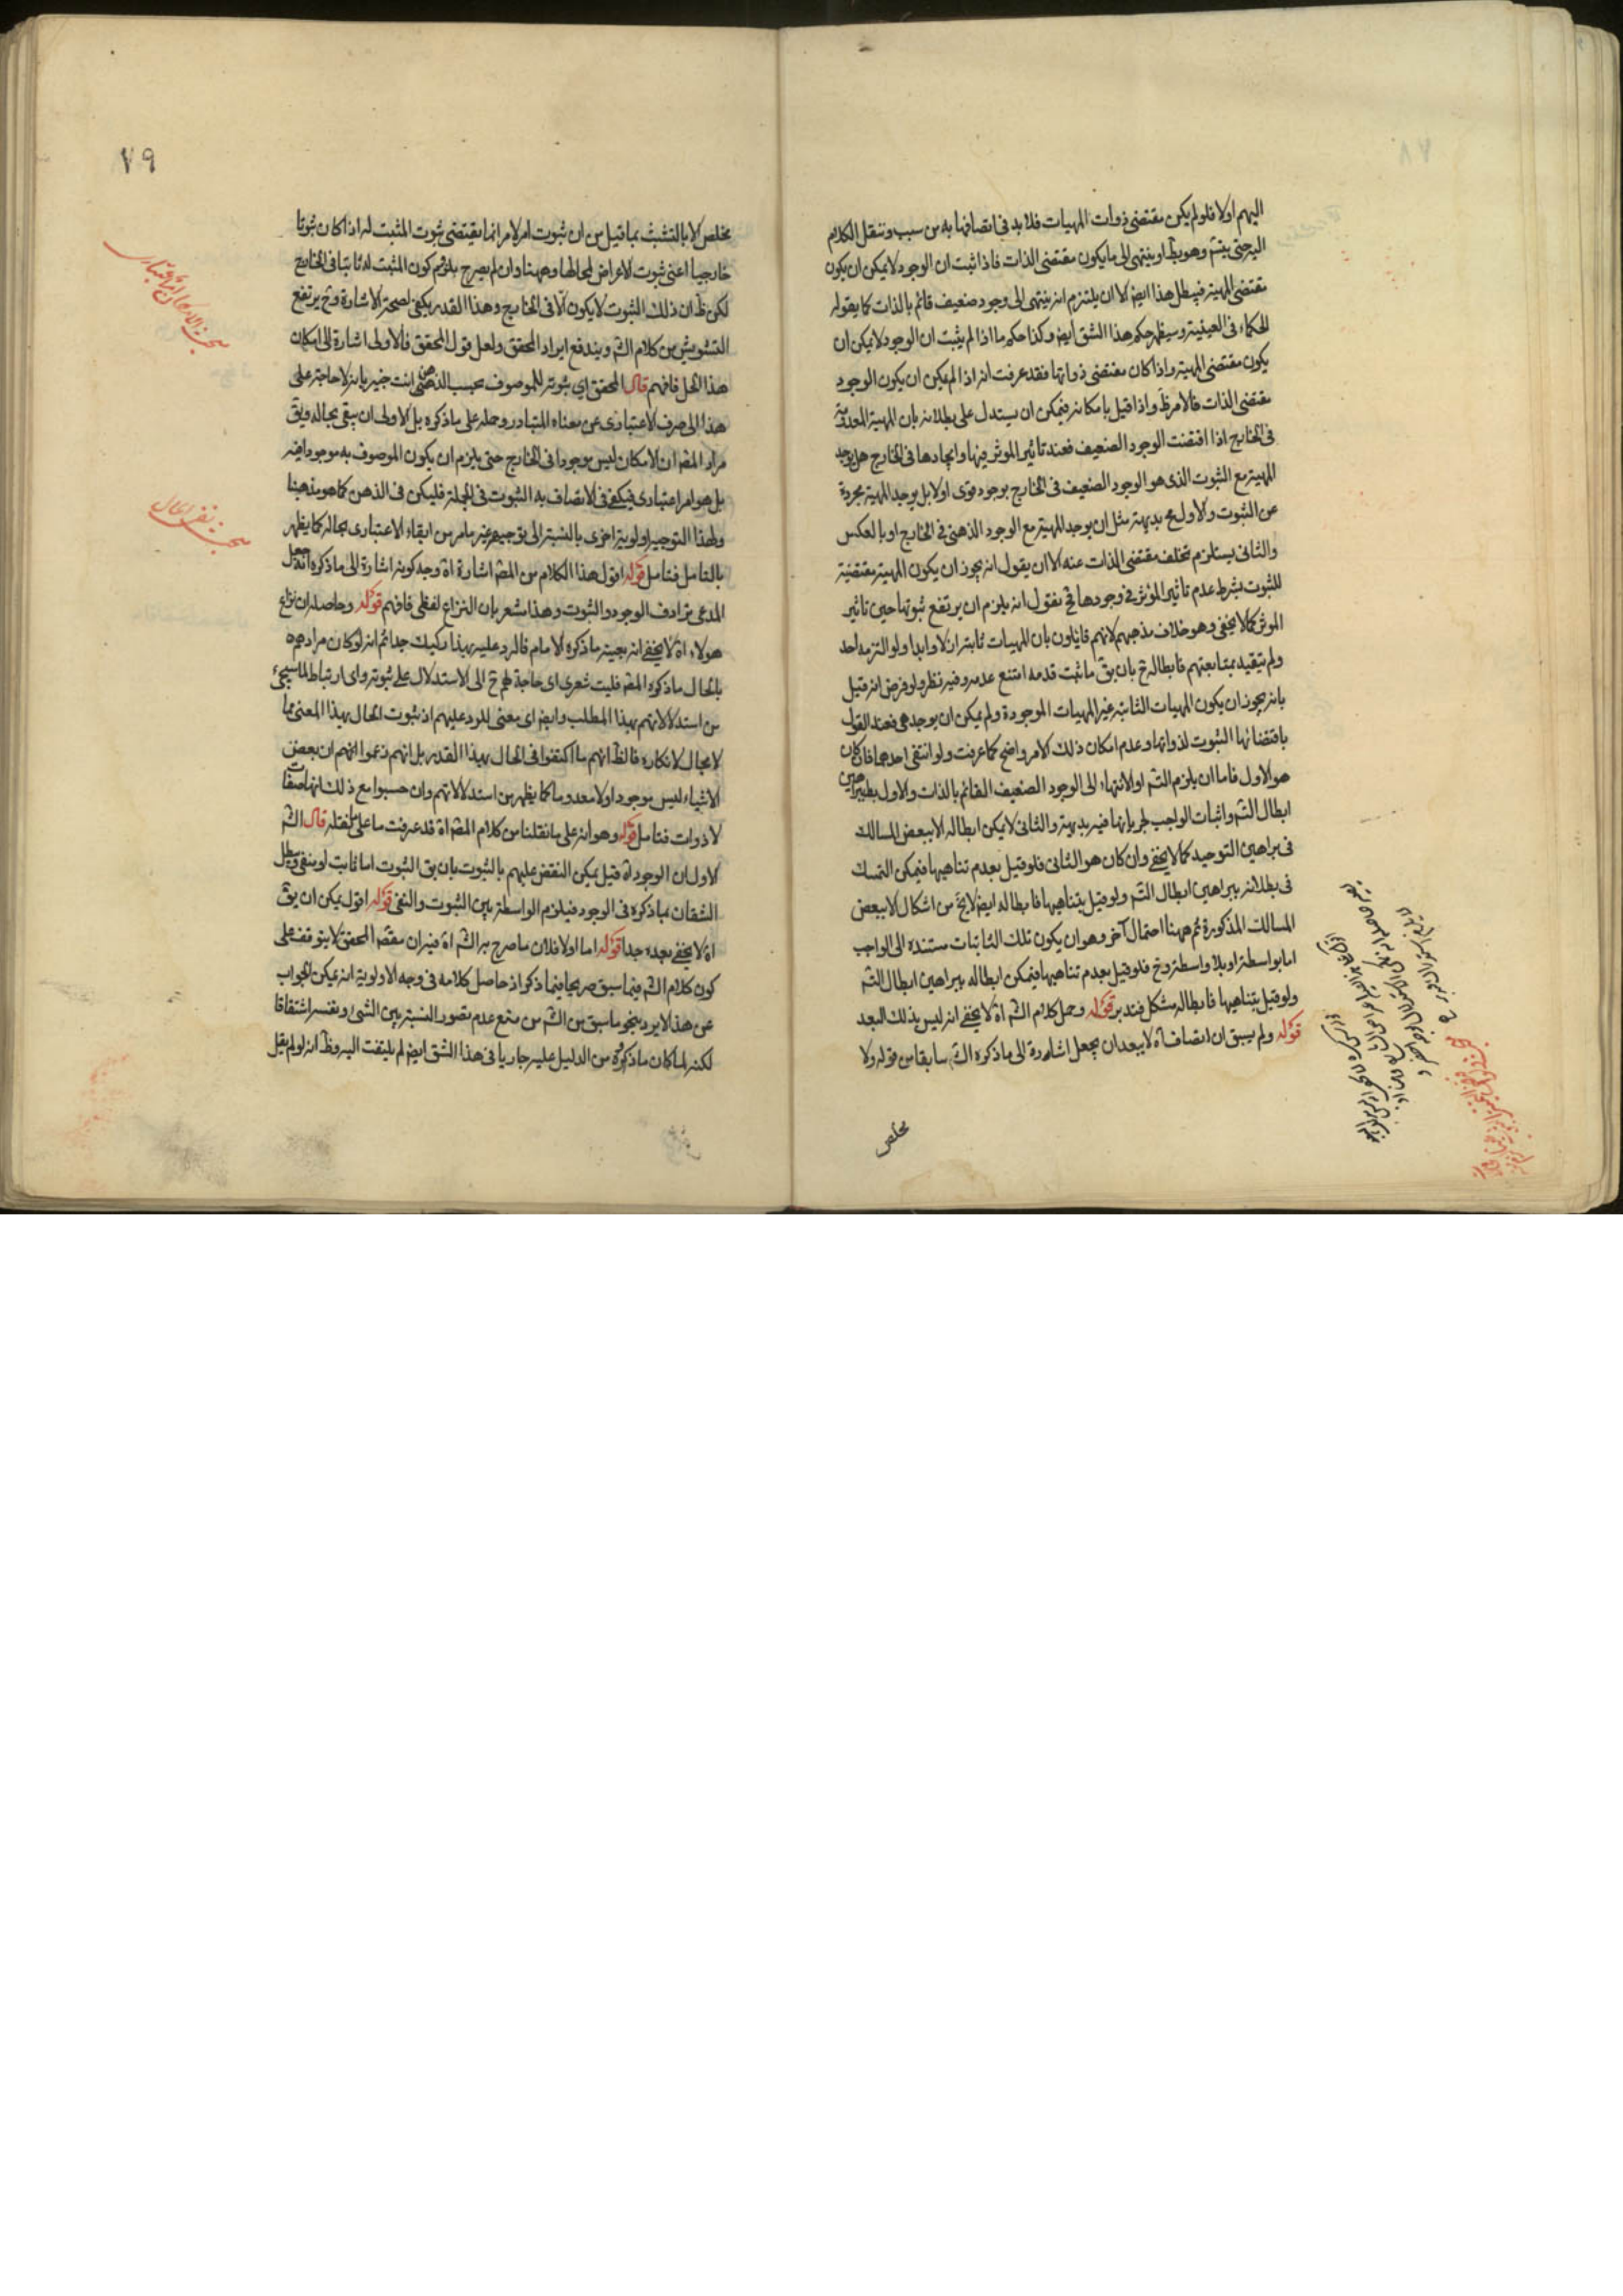 اليهم اولا فلو لم يكن مقتضى ذوات المهيات فلا بد فى اتصافها به من سبب وننقل الكلام
اليه حتى يتسلسل وهو بط او ينتهى الى ما يكون مقتضى الذات فاذا ثبت ان الوجود لا يمكن ان يكون
مقتضى المهية فيبطل هذا ايض الا ان يلتزم انه ينتهى الى وجود ضعيف قائم بالذات كما يقوله
الحكماء فى العينية وسيظهر حكم هذا الشق ايض وكذا حكم ما اذا لم يثبت ان الوجود لا يمكن ان
يكون مقتضى المهية واذا كان مقتضى ذواتها فقد عرفت انه اذا لم يمكن ان يكون الوجود
مقتضى الذات فالامر ظ واذا قيل بامكانه فيمكن ان يستدل على بطلانه بان المهية المعدومة
فى الخارج اذا اقتضت الوجود الضعيف فعند تاثير الموثر فيها وايجادها فى الخارج هل يوجد
المهية مع الثبوت الذى هو الوجود الضعيف فى الخارج بوجود قوى اولا بل يوجد المهية مجردة
عن الثبوت والاول مح بديهة مثل ان يوجد المهية مع الوجود الذهنى فى الخارج او بالعكس
والثانى يستلزم تخلف مقتضى الذات عنه الا ان يقول انه يجوز ان يكون المهية مقتضية
للثبوت بشرط عدم تاثير المؤثر فى وجودها فح نقول انه يلزم ان يرتفع ثبوتها حين تاثير
الموثر كما لا يخفى وهو خلاف مذهبهم لانهم قايلون بان المهيات ثابتة ازلا وابدا ولو التزمه احد
ولم يتقيد بمتابعتهم فابطاله ح بان يق ما ثبت قدمه امتنع عدمه وفيه نظر ولو فرض انه قيل
بانه يجوز ان يكون المهيات الثابتة غير المهيات الموجودة ولم يمكن ان يوجد هى فعند القول
باقتضائها الثبوت لذواتها وعدم امكان ذلك الامر واضح كما عرفت ولو انتفى احدهما فان كان
هو الاول فاما ان يلزم التس او الانتهاء الى الوجود الضعيف القائم بالذات والاول يبطل ببراهين
ابطال التس واثبات الواجب لجريانها فيه بديهة والثانى لا يمكن ابطاله الا ببعض المسالك
فى براهين التوحيد كما لا يخفى وان كان هو الثانى فلو قيل بعدم تناهيها فيمكن التمسك
فى بطلانه ببراهين ابطال التس ولو قيل بتناهيها فابطاله ايض لا يخ من اشكال الا ببعض
المسالك المذكورة ثم ههنا احتمال آخر وهو ان يكون تلك الثابتات مستندة الى الواجب
اما بواسطة او بلا واسطة وح فلو قيل بعدم تناهيها فيمكن ابطاله ببراهين ابطال التس
ولو قيل بتناهيها فابطاله مشكل فتدبر قوله وحمل كلام الش اه لا يخفى انه ليس بذلك البعد
قوله ولم يسبق ان اتصاف اه لا يبعد ان يجعل اشارة الى ما ذكره الش سابقا من قوله ولا
مخلص
٧٩
مخلص الا بالتشبث بما قيل من ان ثبوت امر لامر انما يقتضى ثبوت المثبت له اذا كان ثبوتا
خارجيا اعنى ثبوت الاعراض لمحالها وههنا وان لم يصرح بلزوم كون المثبت له ثابتا فى الخارج
لكن ظ ان ذلك الثبوت لا يكون الا فى الخارج وهذا القدر يكفى لصحة الاشارة وح يرتفع
التشويش من كلام الش ويندفع ايراد المحقق ولعل قول المحقق فالاولى اشارة الى امكان
هذا الحل فافهم قال المحقق اى ثبوته للموصوف بحسب الذهن انت خبير بانه لا حاجة على
هذا الى صرف الاعتبارى عن معناه المتبادر وحمله على ما ذكره بل الاولى ان يبقى بحاله ويق
مراد المص ان الامكان ليس موجودا فى الخارج حتى يلزم ان يكون الموصوف به موجودا فيه
بل هو امر اعتبارى فيكفى فى الاتصاف به الثبوت فى الجملة فليكن فى الذهن كما هو مذهبنا
ولهذا التوجيه اولوية اخرى بالنسبة الى توجيهه غير ما مر من ابقاء الاعتبارى بحاله كما يظهر
بالتامل فتامل قوله اقول هذا الكلام من المص اشارة اه وجه كونه اشارة الى ما ذكره انه جعل
المدعى ترادف الوجود والثبوت وهذا مشعر بان النزاع لفظى فافهم قوله وحاصله ان نزاع
هولاء اه لا يخفى انه بعينه ما ذكره الامام فالرد عليه بهذا ركيك جدا ثم انه لو كان مرادهم
بالحال ما ذكره المص فليت شعرى اى حاجة لهم ح الى الاستدلال على ثبوته واى ارتباط لما سيجئ
من استدلالاتهم بهذا المطلب وايض اى معنى للرد عليهم اذ ثبوت الحال بهذا المعنى مما
لا مجال لانكاره فالظ انهم ما اكتفوا فى الحال بهذا القدر بل انهم زعموا انهم ان بعض
الاشياء ليس موجودا ولا معدوما كما يظهر من استدلالاتهم وان حسبوا مع ذلك انها صفات
لا ذوات فتامل قوله وهو انه على ما نقلنا من كلام المص اه قد عرفت ما على ما نقله قال الش
الاول ان الوجود اه قيل يمكن النقض عليهم بالثبوت بان يق الثبوت اما ثابت او منفى ويبطل
الشقان بما ذكره فى الوجود فيلزم الواسطة بين الثبوت والنفى قوله اقول يمكن ان يق
اه لا يخفى بعده جدا قوله اما اولا فلان ما صرح به الش اه فيه ان مقصد المحقق لا يتوقف على
كون كلام الش فيما سبق صريحا فيما ذكر اذ حاصل كلامه فى وجه الاولوية انه يمكن الجواب
عن هذا الايراد بنحو ما سبق من الش من منع عدم تصور النسبة بين الشئ ونفسه اشتقاقا
لكنه لما كان ما ذكروه من الدليل عليه جاريا فى هذا الشق ايض لم يلتفت اليه وظ انه لو لم يقل